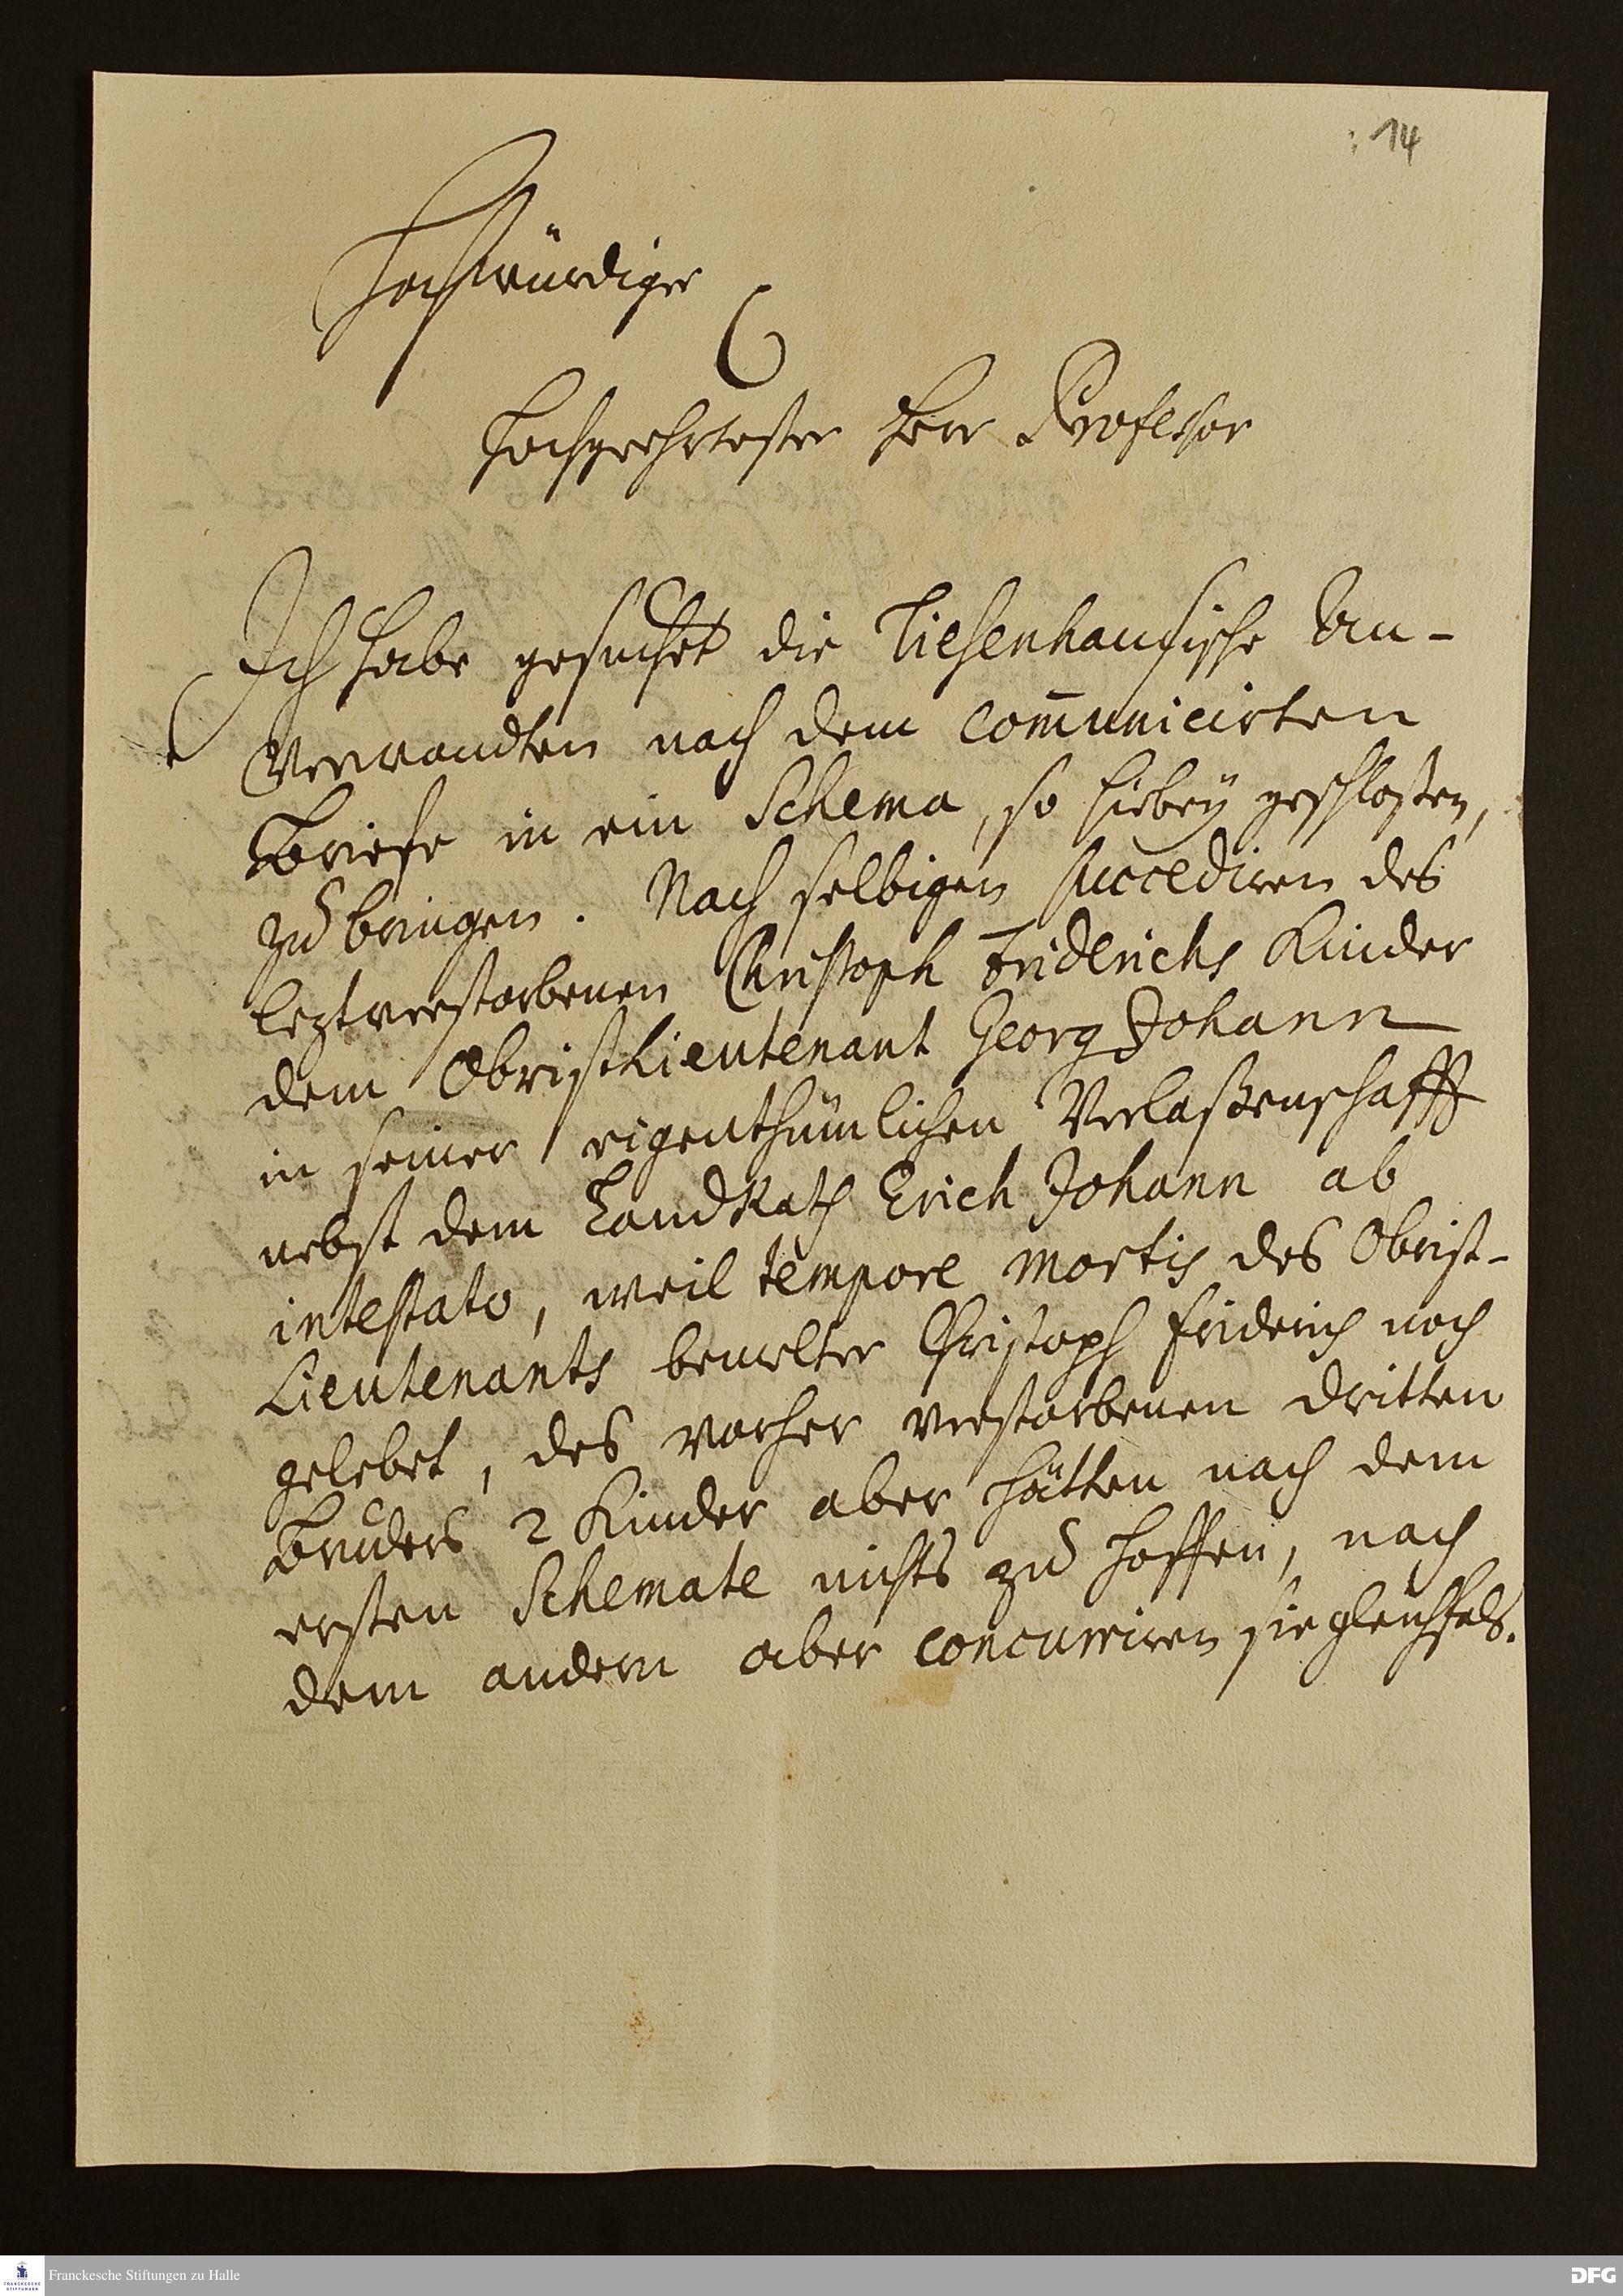 : 14
Hochwürdiger
Hochgeehrtester Herr Professor
Ich habe gesuchet die Tiesenhausische An-
Verwandten nach dem com̄unicirten
Briefe in ein Schema, so hiebey geschloßen,
zu bringen. Nach selbigen succediren des
leztverstorbenen Christoph Friderichs Kinder
dem ObristLieutenant Georg Johann
in seiner eigenthümlichen Verlaßenschafft
nebst dem LandRath Erich Johann ab
intestato, weil tempore mortis des Obrist-
Lieutenants bemelter Christoph Friderich noch
gelebet, des vorher verstorbenen dritten
Bruders 2 Kinder aber hätten nach dem
ersten Schemate nichts zu hoffen, nach
dem andern aber concurriren sie gleichfals.
Franckesche Stiftungen zu Halle
DFG